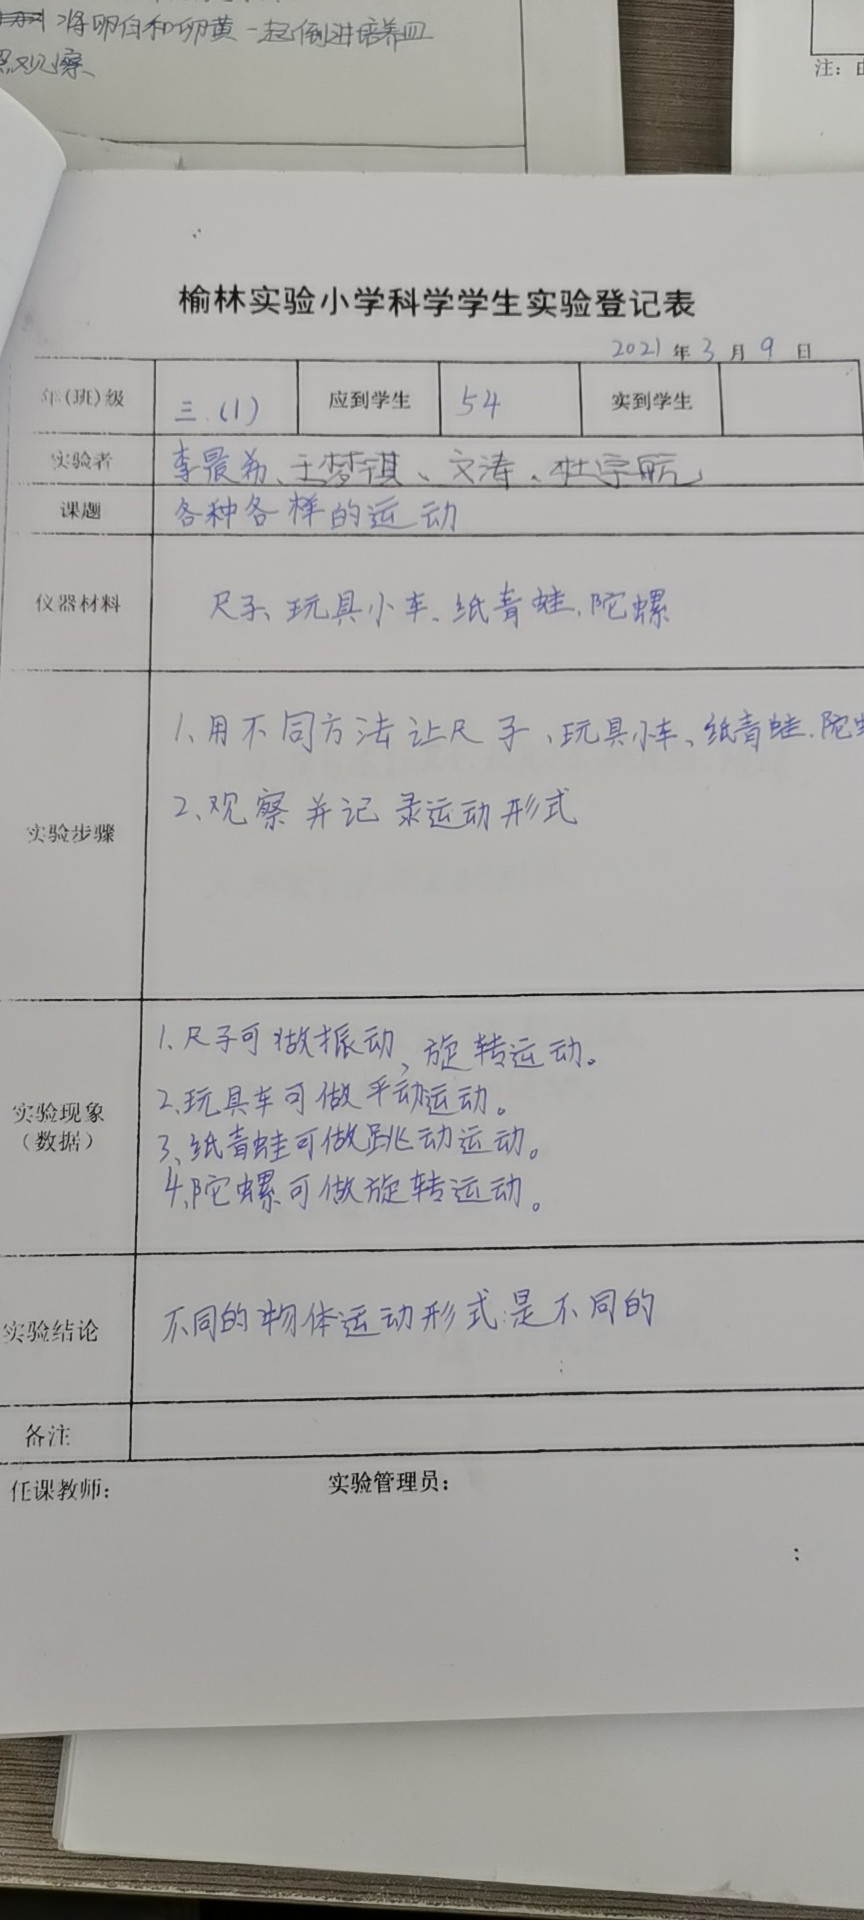 将卵白和卵黄一起倒进培养皿
观察
注：
榆林实验小学科学学生实验登记表
2021年3月9日
年(班)级 三.(1) 应到学生 54 实到学生
实验者 李晨希、王梦祺、文涛、杜宇航
课题 各种各样的运动
仪器材料 尺子、玩具小车、纸青蛙、陀螺
实验步骤
1、用不同方法让尺子、玩具小车、纸青蛙、陀
2、观察并记录运动形式
实验现象（数据）
1、尺子可做振动、旋转运动。
2、玩具车可做平动运动。
3、纸青蛙可做跳动运动。
4、陀螺可做旋转运动。
实验结论 不同的物体运动形式是不同的
备注
任课教师： 实验管理员：